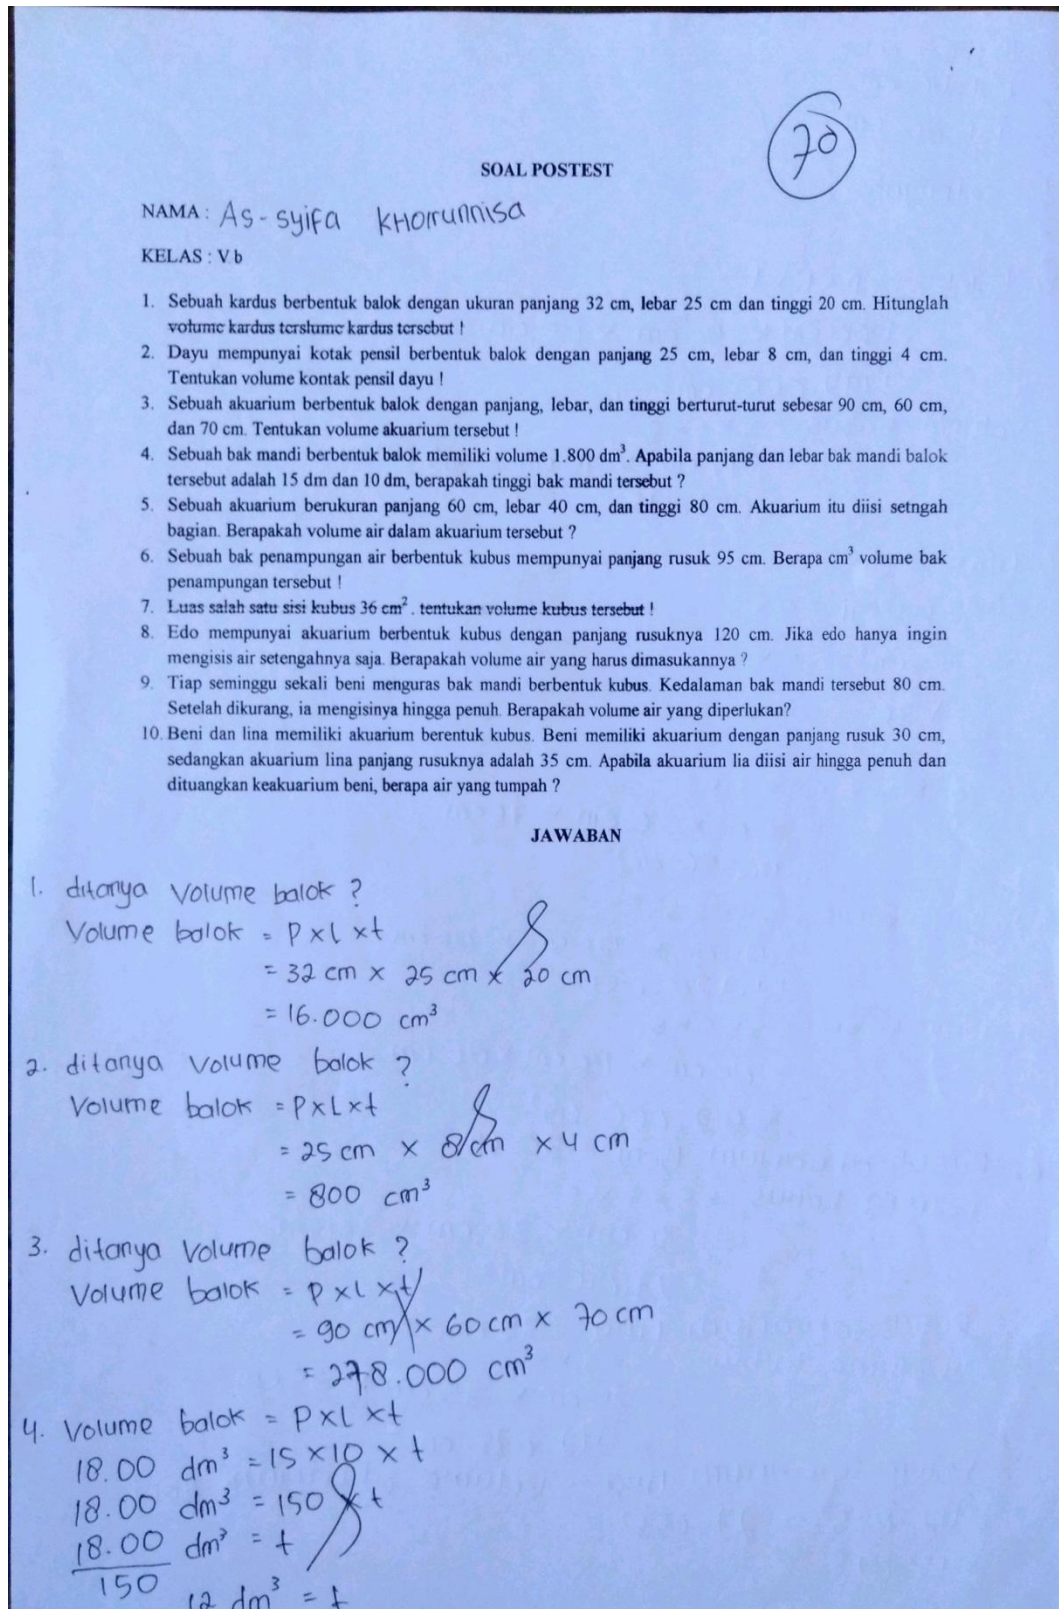 70
SOAL POSTEST
NAMA : As-syifa kHorrunnisa
KELAS : V b
1. Sebuah kardus berbentuk balok dengan ukuran panjang 32 cm, lebar 25 cm dan tinggi 20 cm. Hitunglah
volume kardus terslume kardus tersebut !
2. Dayu mempunyai kotak pensil berbentuk balok dengan panjang 25 cm, lebar 8 cm, dan tinggi 4 cm.
Tentukan volume kontak pensil dayu !
3. Sebuah akuarium berbentuk balok dengan panjang, lebar, dan tinggi berturut-turut sebesar 90 cm, 60 cm,
dan 70 cm. Tentukan volume akuarium tersebut !
4. Sebuah bak mandi berbentuk balok memiliki volume 1.800 dm³. Apabila panjang dan lebar bak mandi balok
tersebut adalah 15 dm dan 10 dm, berapakah tinggi bak mandi tersebut ?
5. Sebuah akuarium berukuran panjang 60 cm, lebar 40 cm, dan tinggi 80 cm. Akuarium itu diisi setngah
bagian. Berapakah volume air dalam akuarium tersebut ?
6. Sebuah bak penampungan air berbentuk kubus mempunyai panjang rusuk 95 cm. Berapa cm³ volume bak
penampungan tersebut !
7. Luas salah satu sisi kubus 36 cm² . tentukan volume kubus tersebut !
8. Edo mempunyai akuarium berbentuk kubus dengan panjang rusuknya 120 cm. Jika edo hanya ingin
mengisis air setengahnya saja. Berapakah volume air yang harus dimasukannya ?
9. Tiap seminggu sekali beni menguras bak mandi berbentuk kubus. Kedalaman bak mandi tersebut 80 cm.
Setelah dikurang, ia mengisinya hingga penuh. Berapakah volume air yang diperlukan?
10. Beni dan lina memiliki akuarium berentuk kubus. Beni memiliki akuarium dengan panjang rusuk 30 cm,
sedangkan akuarium lina panjang rusuknya adalah 35 cm. Apabila akuarium lia diisi air hingga penuh dan
dituangkan keakuarium beni, berapa air yang tumpah ?
JAWABAN
1. ditanya volume balok ?
Volume balok = P x l x t
= 32 cm x 25 cm x 20 cm
= 16.000 cm³
2. ditanya volume balok ?
Volume balok = P x L x t
= 25 cm x 8 cm x 4 cm
= 800 cm³
3. ditanya volume balok ?
Volume balok = P x l x t
= 90 cm x 60 cm x 70 cm
= 278.000 cm³
4. Volume balok = P x l x t
18.00 dm³ = 15 x 10 x t
18.00 dm³ = 150 x t
18.00 dm³ = t
150
12 dm³ = t